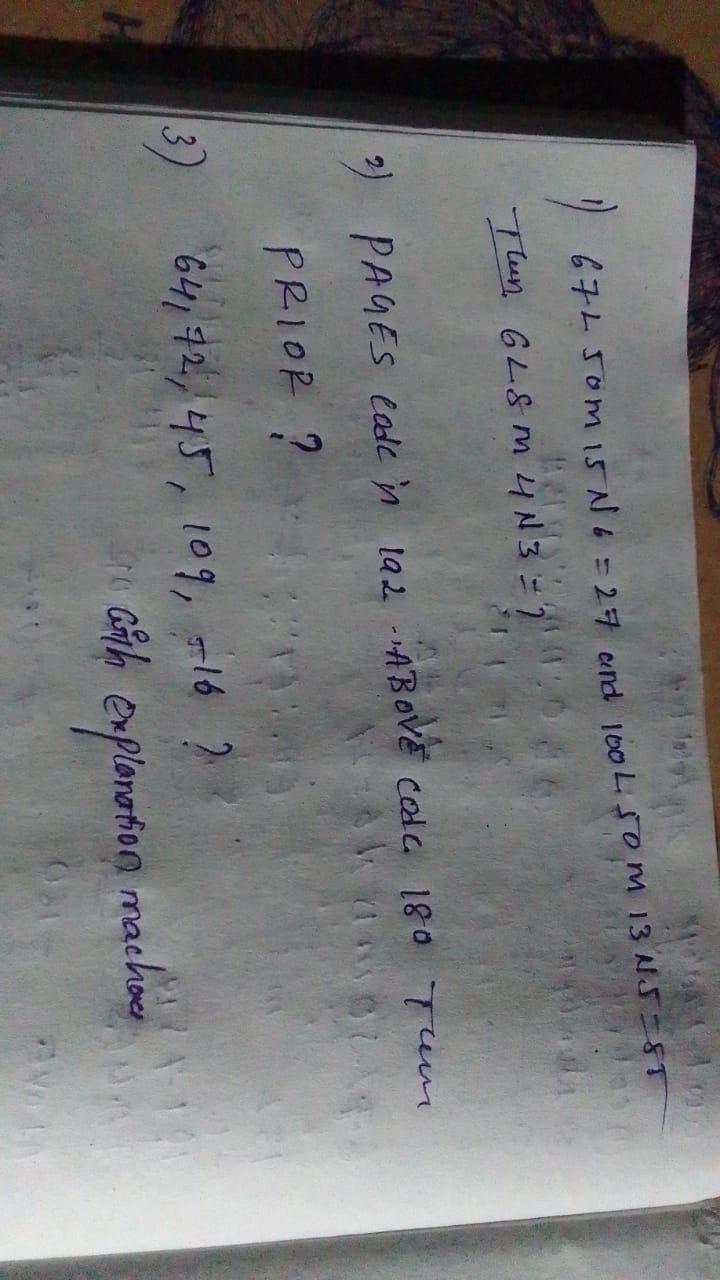 1) 67L 50 m 15 N 6 = 27 and 100L 50 m 13 N 5 = 85
Then 6L8 m 4N3 = ?
2) PAGES code in 192 ABOVE code 180 Then
PRIOR ?
3) 64, 72, 45, 109, -16 ?
with explanation machos